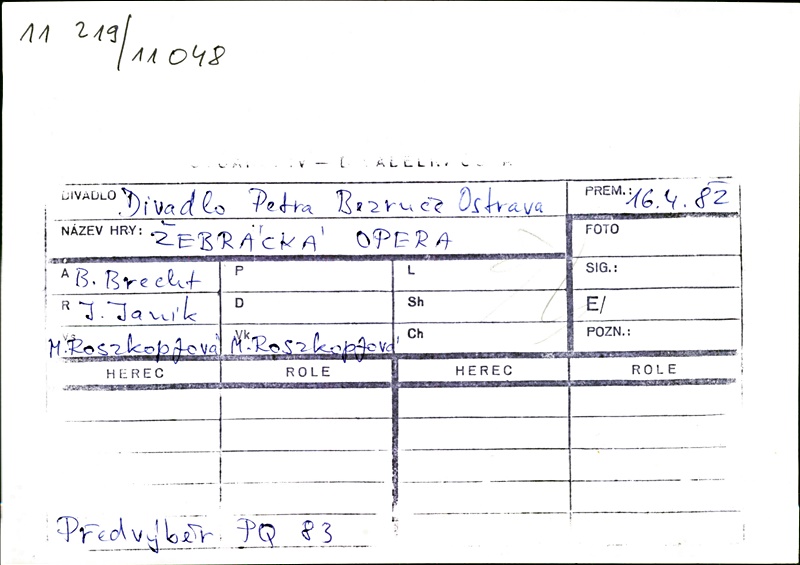 11 219/11048
DIVADLO Divadlo Petra Bezruče Ostrava PREM.: 16.4.82
NÁZEV HRY: ŽEBRÁCKÁ OPERA FOTO
A B. Brecht P L SIG.:
R J. Janík D Sh E/
M. Roszkopfová Vk M. Roszkopfová Ch POZN.:
HEREC ROLE HEREC ROLE
Předvýběr. PQ 83